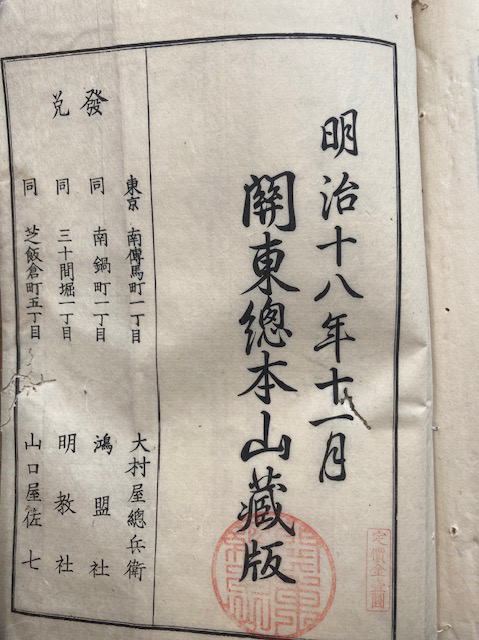 明治十八年十一月
關東總本山藏版
發兌
東京 南傳馬町一丁目 大村屋總兵衛
同 南鍋町一丁目 鴻盟社
同 三十間堀一丁目 明教社
同 芝飯倉町五丁目 山口屋佐七